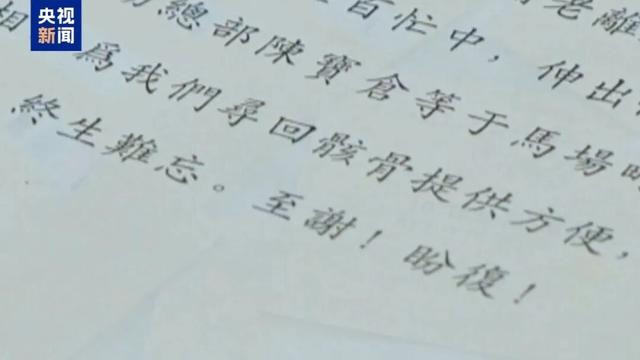 央视
新闻
百忙中，伸出
總部陳寶倉等于馬場
爲我們尋回骸骨提供方便，
終生難忘。至謝！盼復！